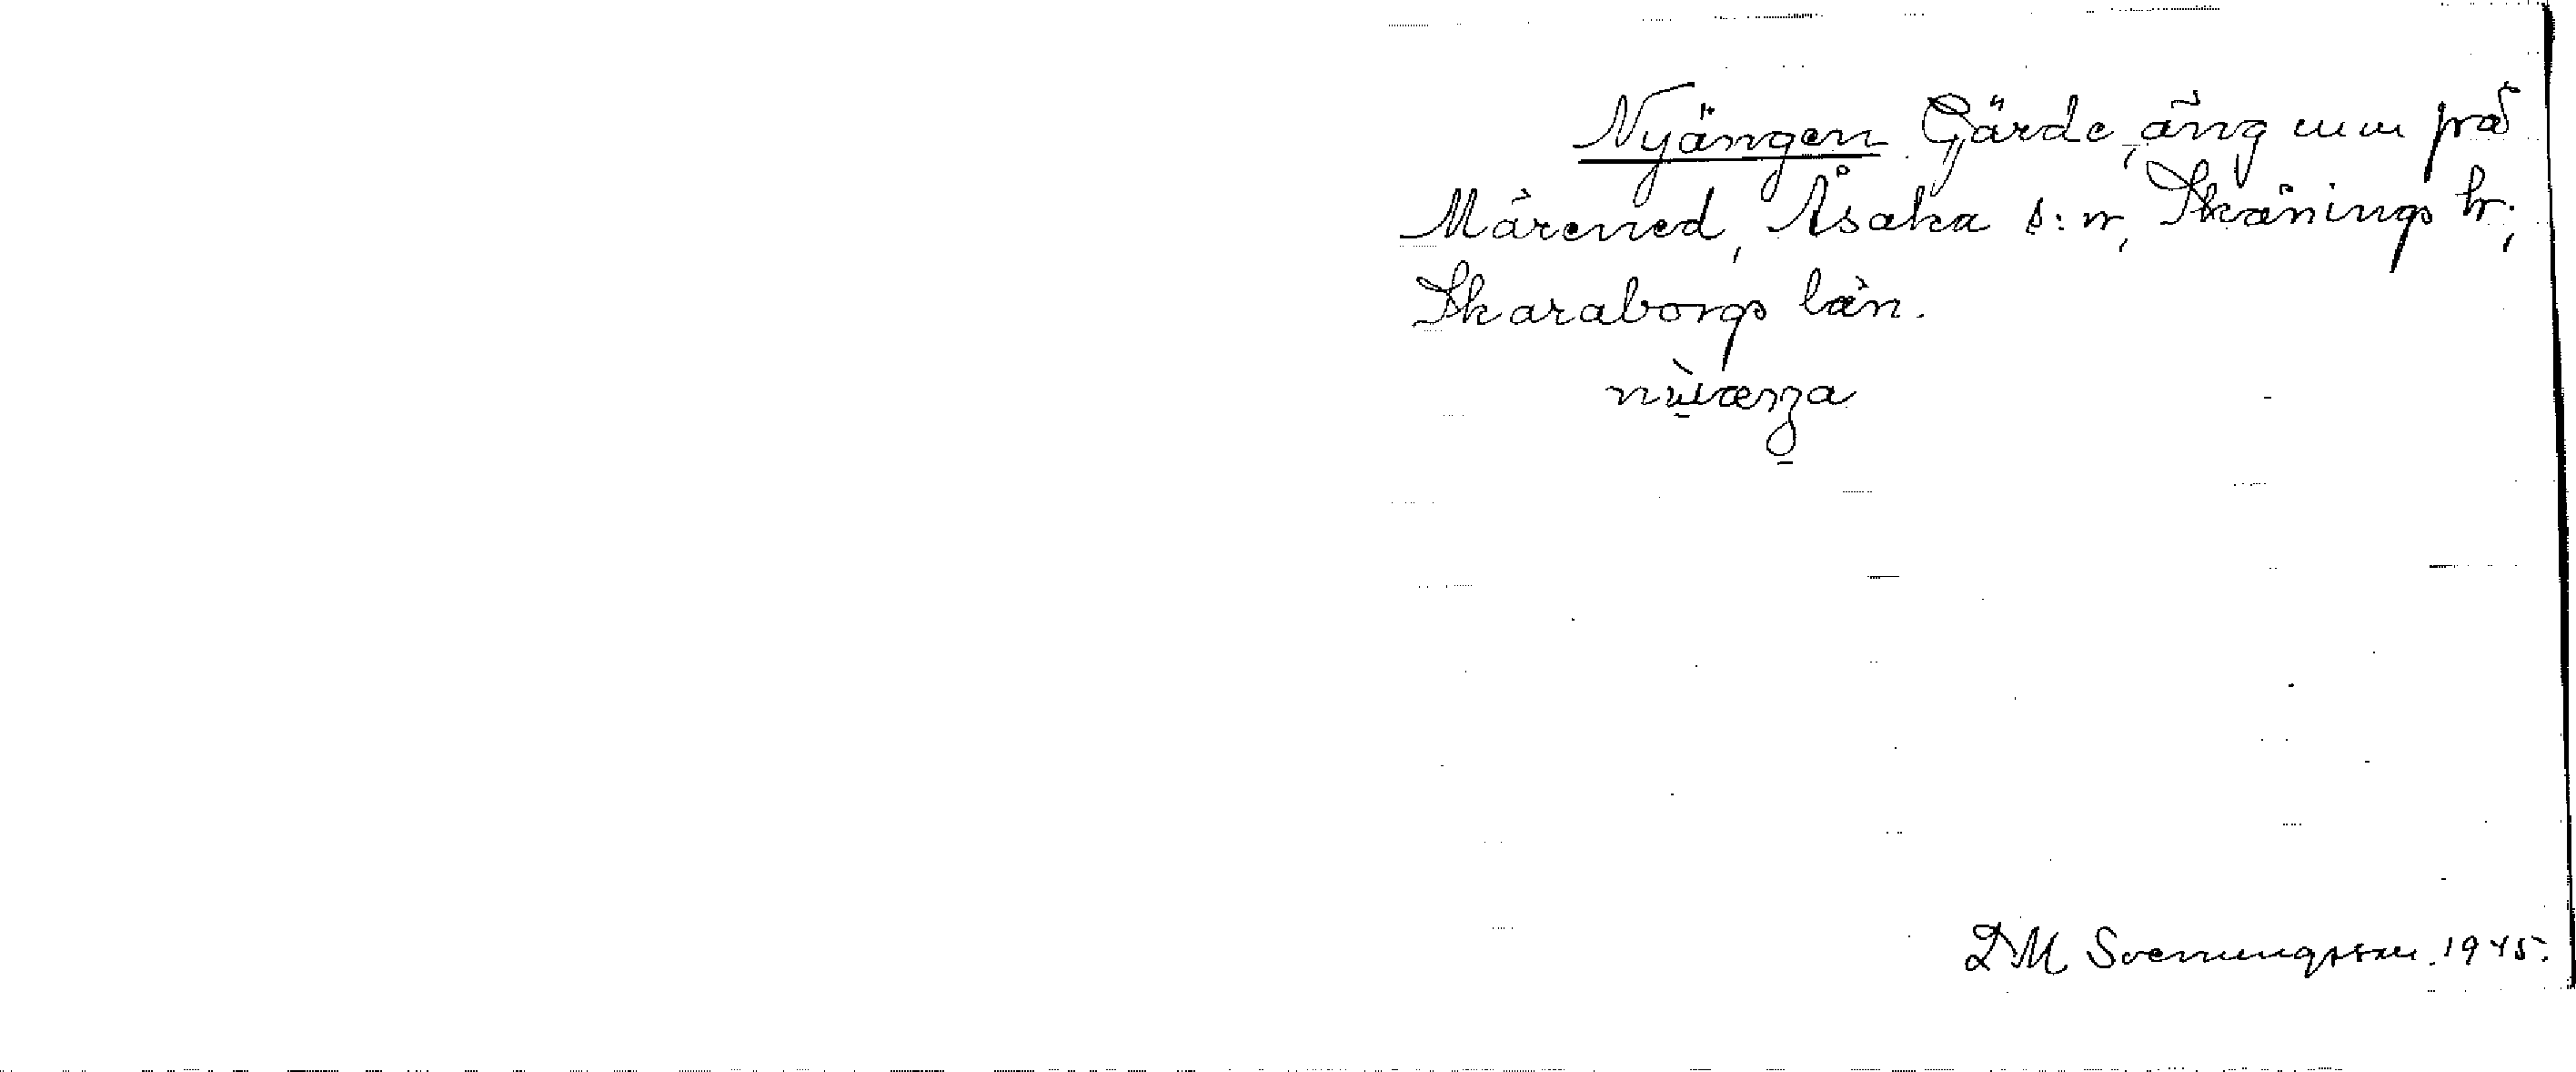 Nyängen Gärde, äng mm på
Mårened, Åsaka s:n, Skånings hr;
Skaraborgs län.
D M Svenungsson. 1945.